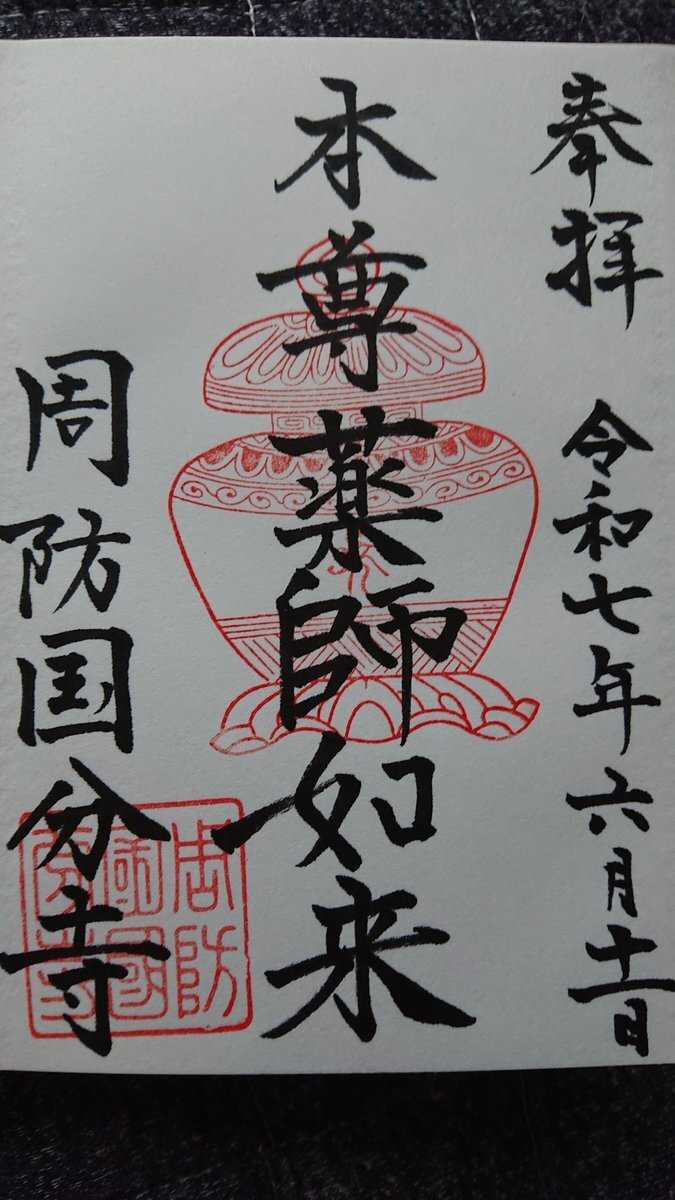 奉拝 令和七年六月十一日
本尊薬師如来
周防国分寺
周防
國